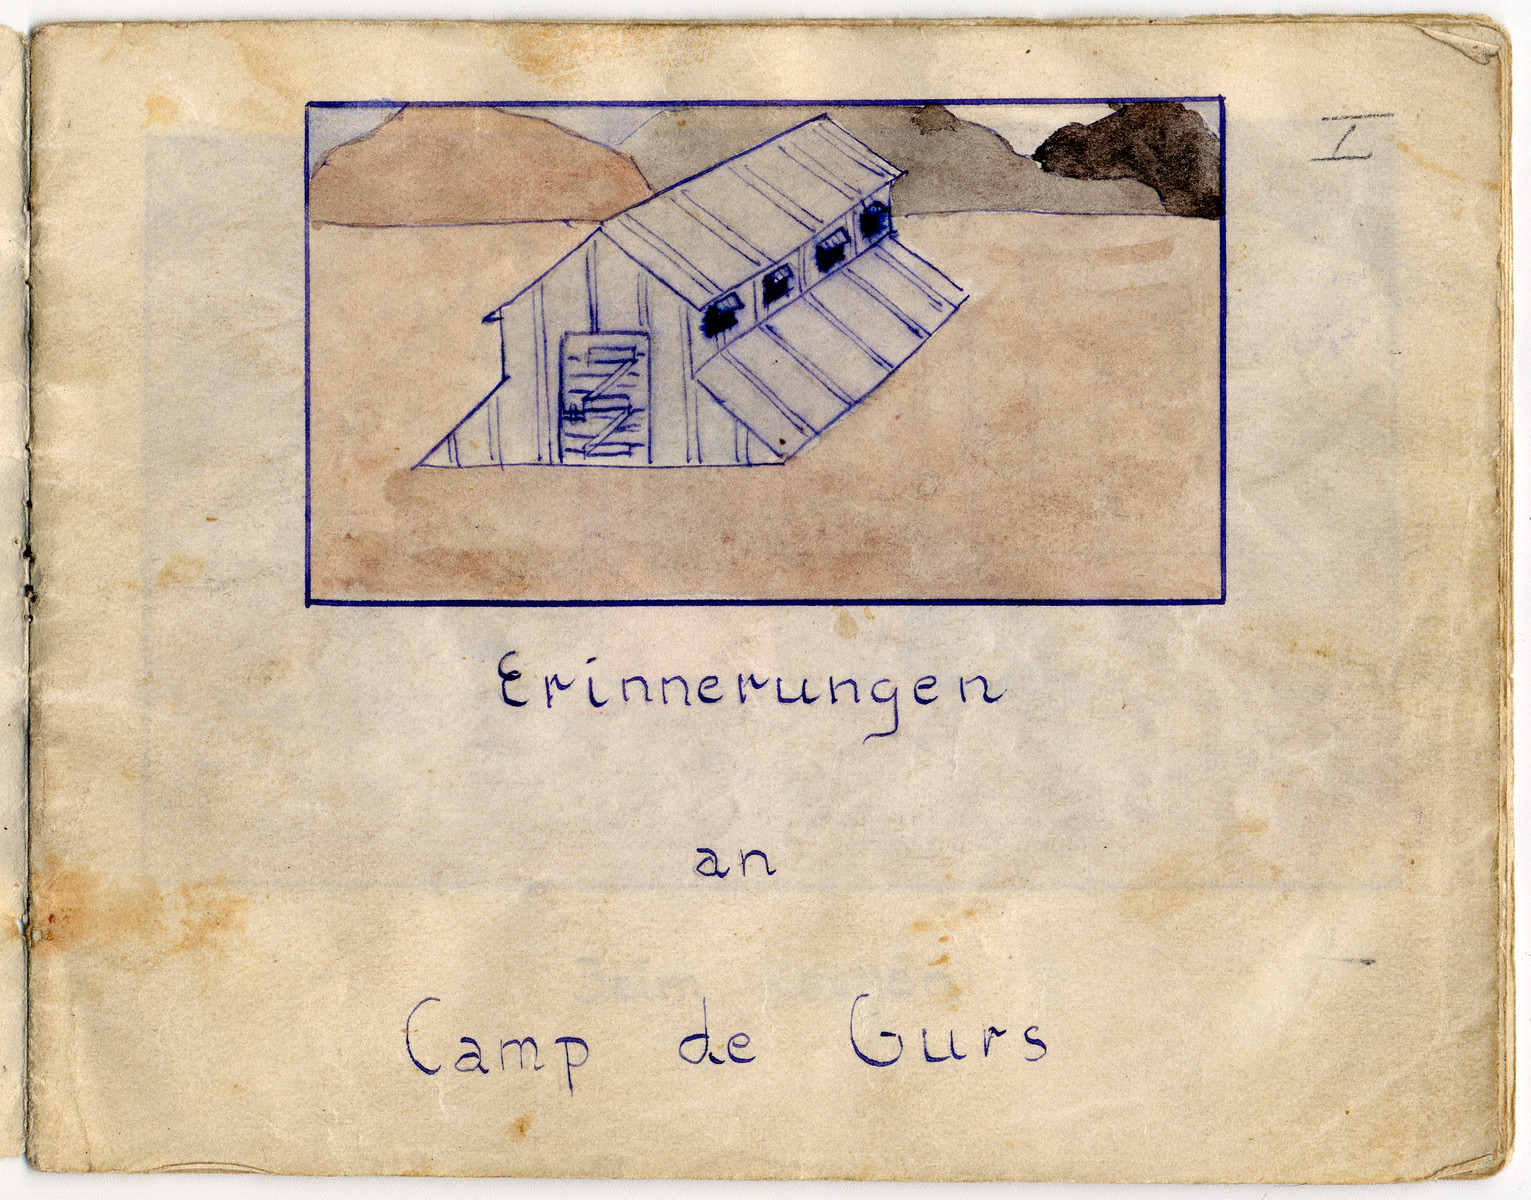 I
Erinnerungen
an
Camp de Gurs